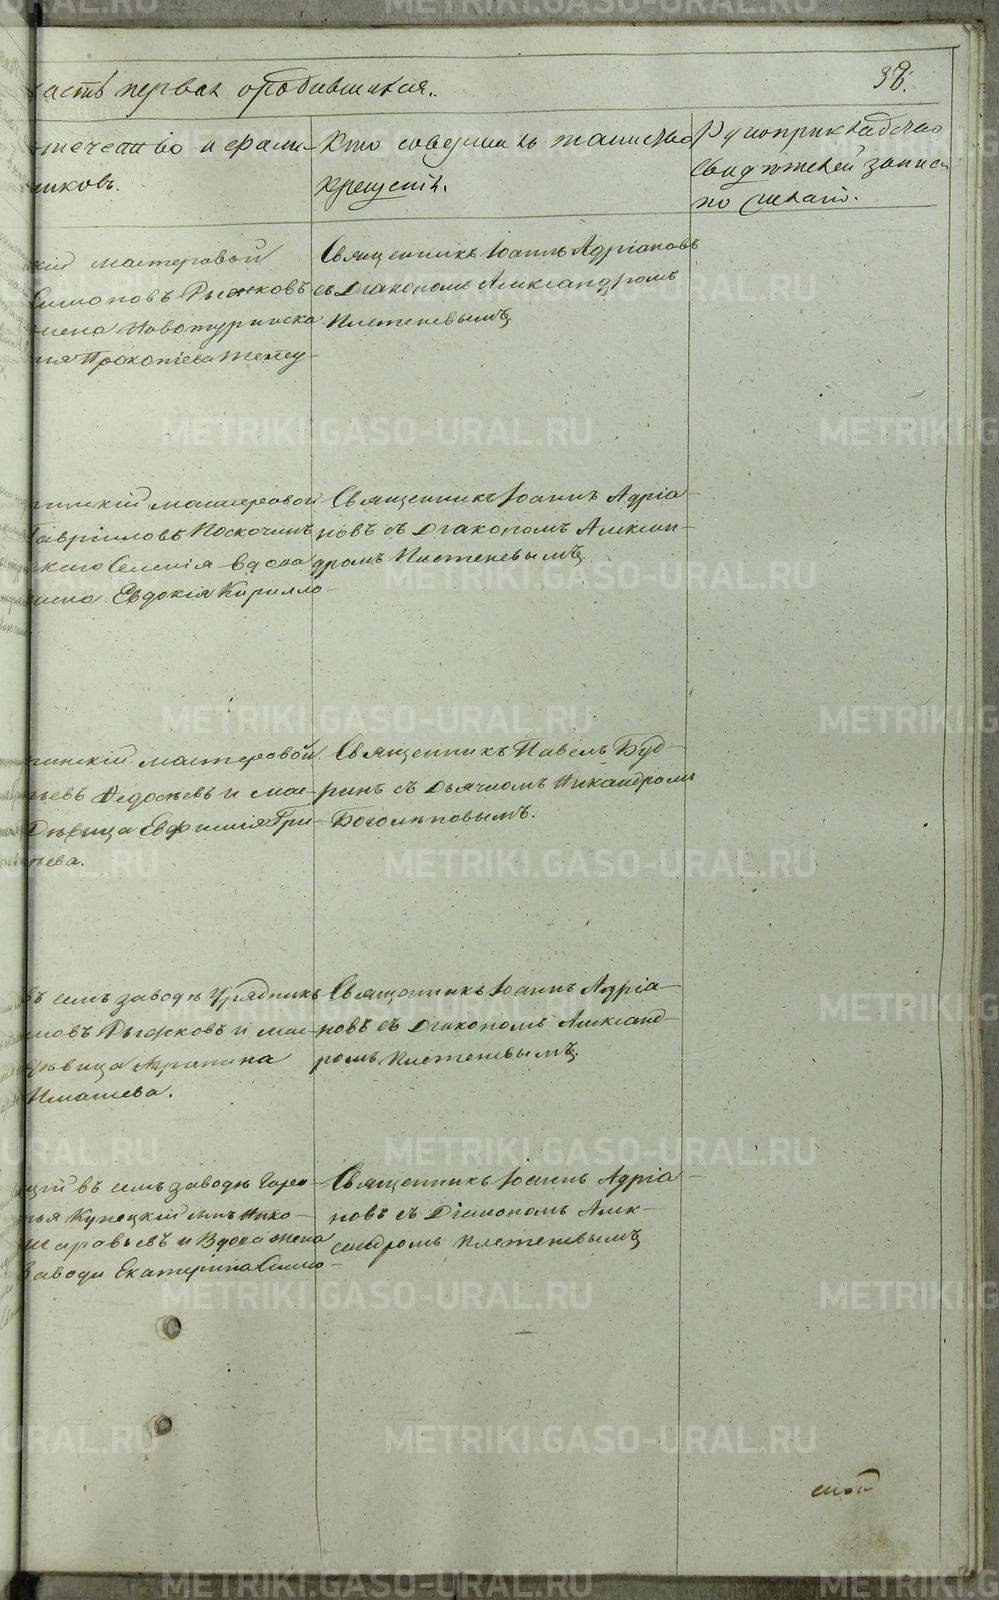 часть первая о родившихся.
38.
отечество и фами-
ликовъ.
Кто совершилъ таинство
крещенія.
Рукоприкладство
свидѣтелей записи
по желанію.
кій мастеровой
Симоновъ Рыжковъ
жена Новотуринска
Прокопіева Жену-
Священникъ Іоаннъ Адріановъ
съ Діакономъ Александромъ
Плетеневымъ.
тинскій мастеровой
Гавріиловъ Поскочинъ
скаго Селенія вдова
жена Евдокія Кирилло-
Священникъ Іоаннъ Адріа-
новъ съ Діакономъ Алексан-
дромъ Плетеневымъ.
тинскій мастеровой
тьевъ Ѳедосѣевъ и мас-
Дѣвица Евфимія Гри-
тьева.
Священникъ Павелъ Буд-
ринъ съ Дьячкомъ Никандромъ
Боголѣповымъ.
въ семъ заводѣ Урядникъ
мовъ Рыжковъ и мас-
дѣвица Агрипина
Ипатьева.
Священникъ Іоаннъ Адріа-
новъ съ Діакономъ Александ-
ромъ Плетеневымъ.
щій въ семъ заводѣ Горо-
Купецкій сынъ Нико-
и Вдова жена
Завода Екатерина Симо-
Священникъ Іоаннъ Адріа-
новъ съ Діакономъ Алек-
сандромъ Плетеневымъ
METRIKI.GASO-URAL.RU